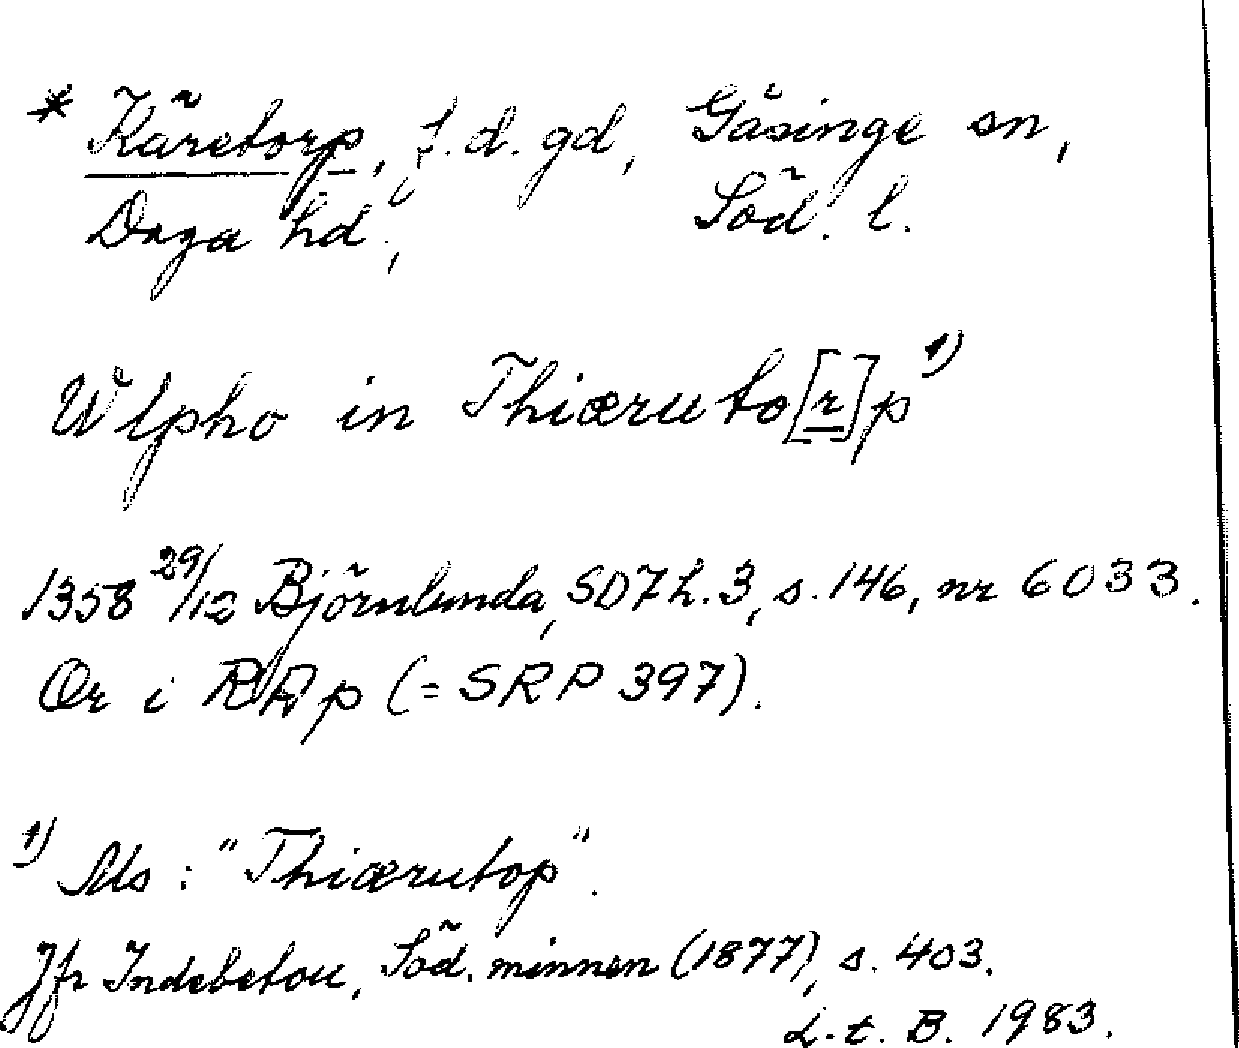 * Käretorp, f.d. gd, Gåsinge sn,
Daga hd, Söd. l.
Wlpho in Thiæruto[r]p 1)
1358 29/12 Björnlunda, SD7 h. 3, s. 146, nr 6033.
Or i RAp (= SRP 397).
1) Ms: "Thiærutop".
Jfr Indebetou, Söd. minnen (1877), s. 403.
L. t. B. 1983.